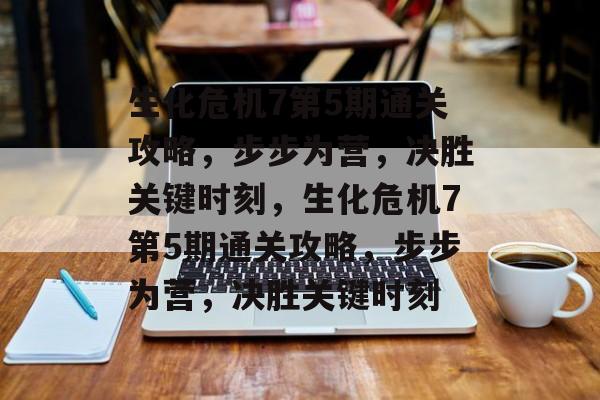 生化危机7第5期通关
攻略，步步为营，决胜
关键时刻，生化危机7
第5期通关攻略，步步
为营，决胜关键时刻